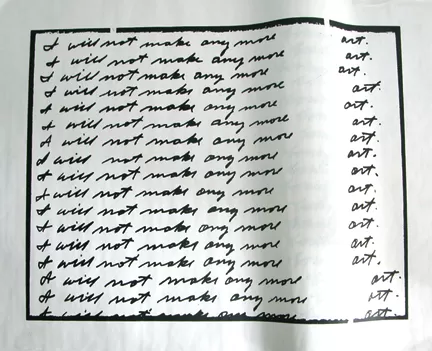 I will not make any more art.
I will not make any more art.
I will not make any more art.
I will not make any more art.
I will not make any more art.
I will not make any more art.
I will not make any more art.
I will not make any more art.
I will not make any more art.
I will not make any more art.
I will not make any more art.
I will not make any more art.
I will not make any more art.
I will not make any more art.
I will not make any more art.
I will not make any more art.
I will not make any more art.